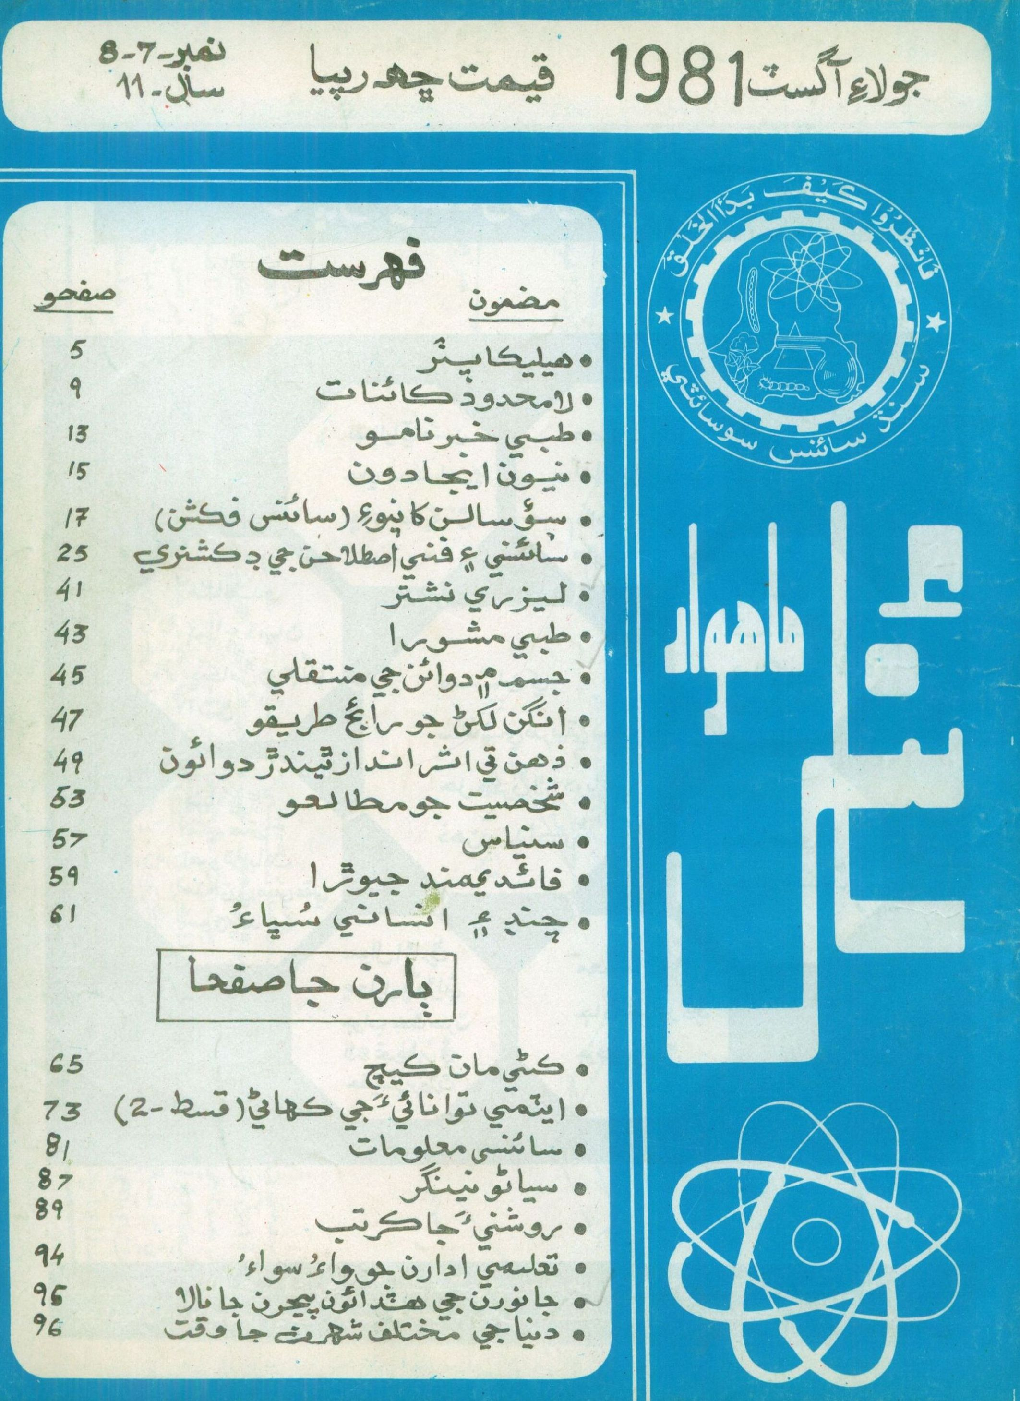 جولاءِ آگسٽ 1981 قيمت ڇھ رپيا
نمبر-7-8
سال-11
فَانْظُرُوْا كَيْفَ بَدَأَ الْخَلْقَ
سنڌ سائنس سوسائٽي
ماهوار
سائنس
فهرست
مضمون صفحو
• هيليڪاپٽر 5
• لامحدود ڪائنات 9
• طبي خبرنامو 13
• نيون ايجادون 15
• سؤ سالن کانپوءِ (سائنس فڪشن) 17
• سائنسي ۽ فني اصطلاحن جي ڊڪشنري 25
• ليزري نشتر 41
• طبي مشورا 43
• جسم ۾ دوائن جي منتقلي 45
• انگن لکڻ جو رائج طريقو 47
• ذهن تي اثر انداز ٿيندڙ دوائون 49
• شخصيت جو مطالعو 53
• سنياس 57
• فائديمند جيوڙا 59
• چنڊ ۽ انساني سُڀاءُ 61
ٻارن جا صفحا
• ڪٿي مان ڪيچ 65
• ايٽمي توانائيءَ جي ڪهاڻي (قسط-2) 73
• سائنسي معلومات 81
• سياڻو نينگر 87
• روشنيءَ جا ڪرتب 89
• تعليمي ادارن جو واءُ سواءُ 94
• جانورن جي هنڌائون پيرن جا نالا 95
• دنيا جي مختلف شهرن جا وقت 96